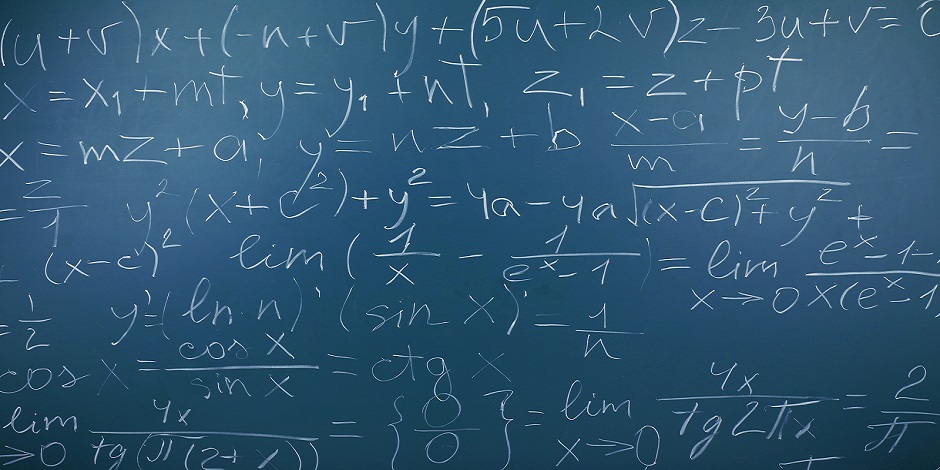 (u+v)x+(-n+v)y+(5u+2v)z-3u+v=0
x=x₁+mt, y=y₁+nt, z₁=z+pt
x=mz+a, y=nz+b (x-a)/m = (y-b)/n =
=z/1 y²(x+c²)+y²=4a-4a√((x-c)²+y²)+
(x-c)² lim(1/x - 1/(eˣ-1)) = lim x→0 (eˣ-1-)/(x(eˣ-1
=1/2 y'=(ln n)' (sin x)'=1/n
cos x = cos x/sin x = ctg x
lim →0 4x/tg(π(2+x)) = {0/0} = lim x→0 4x/tg2πx = 2/π